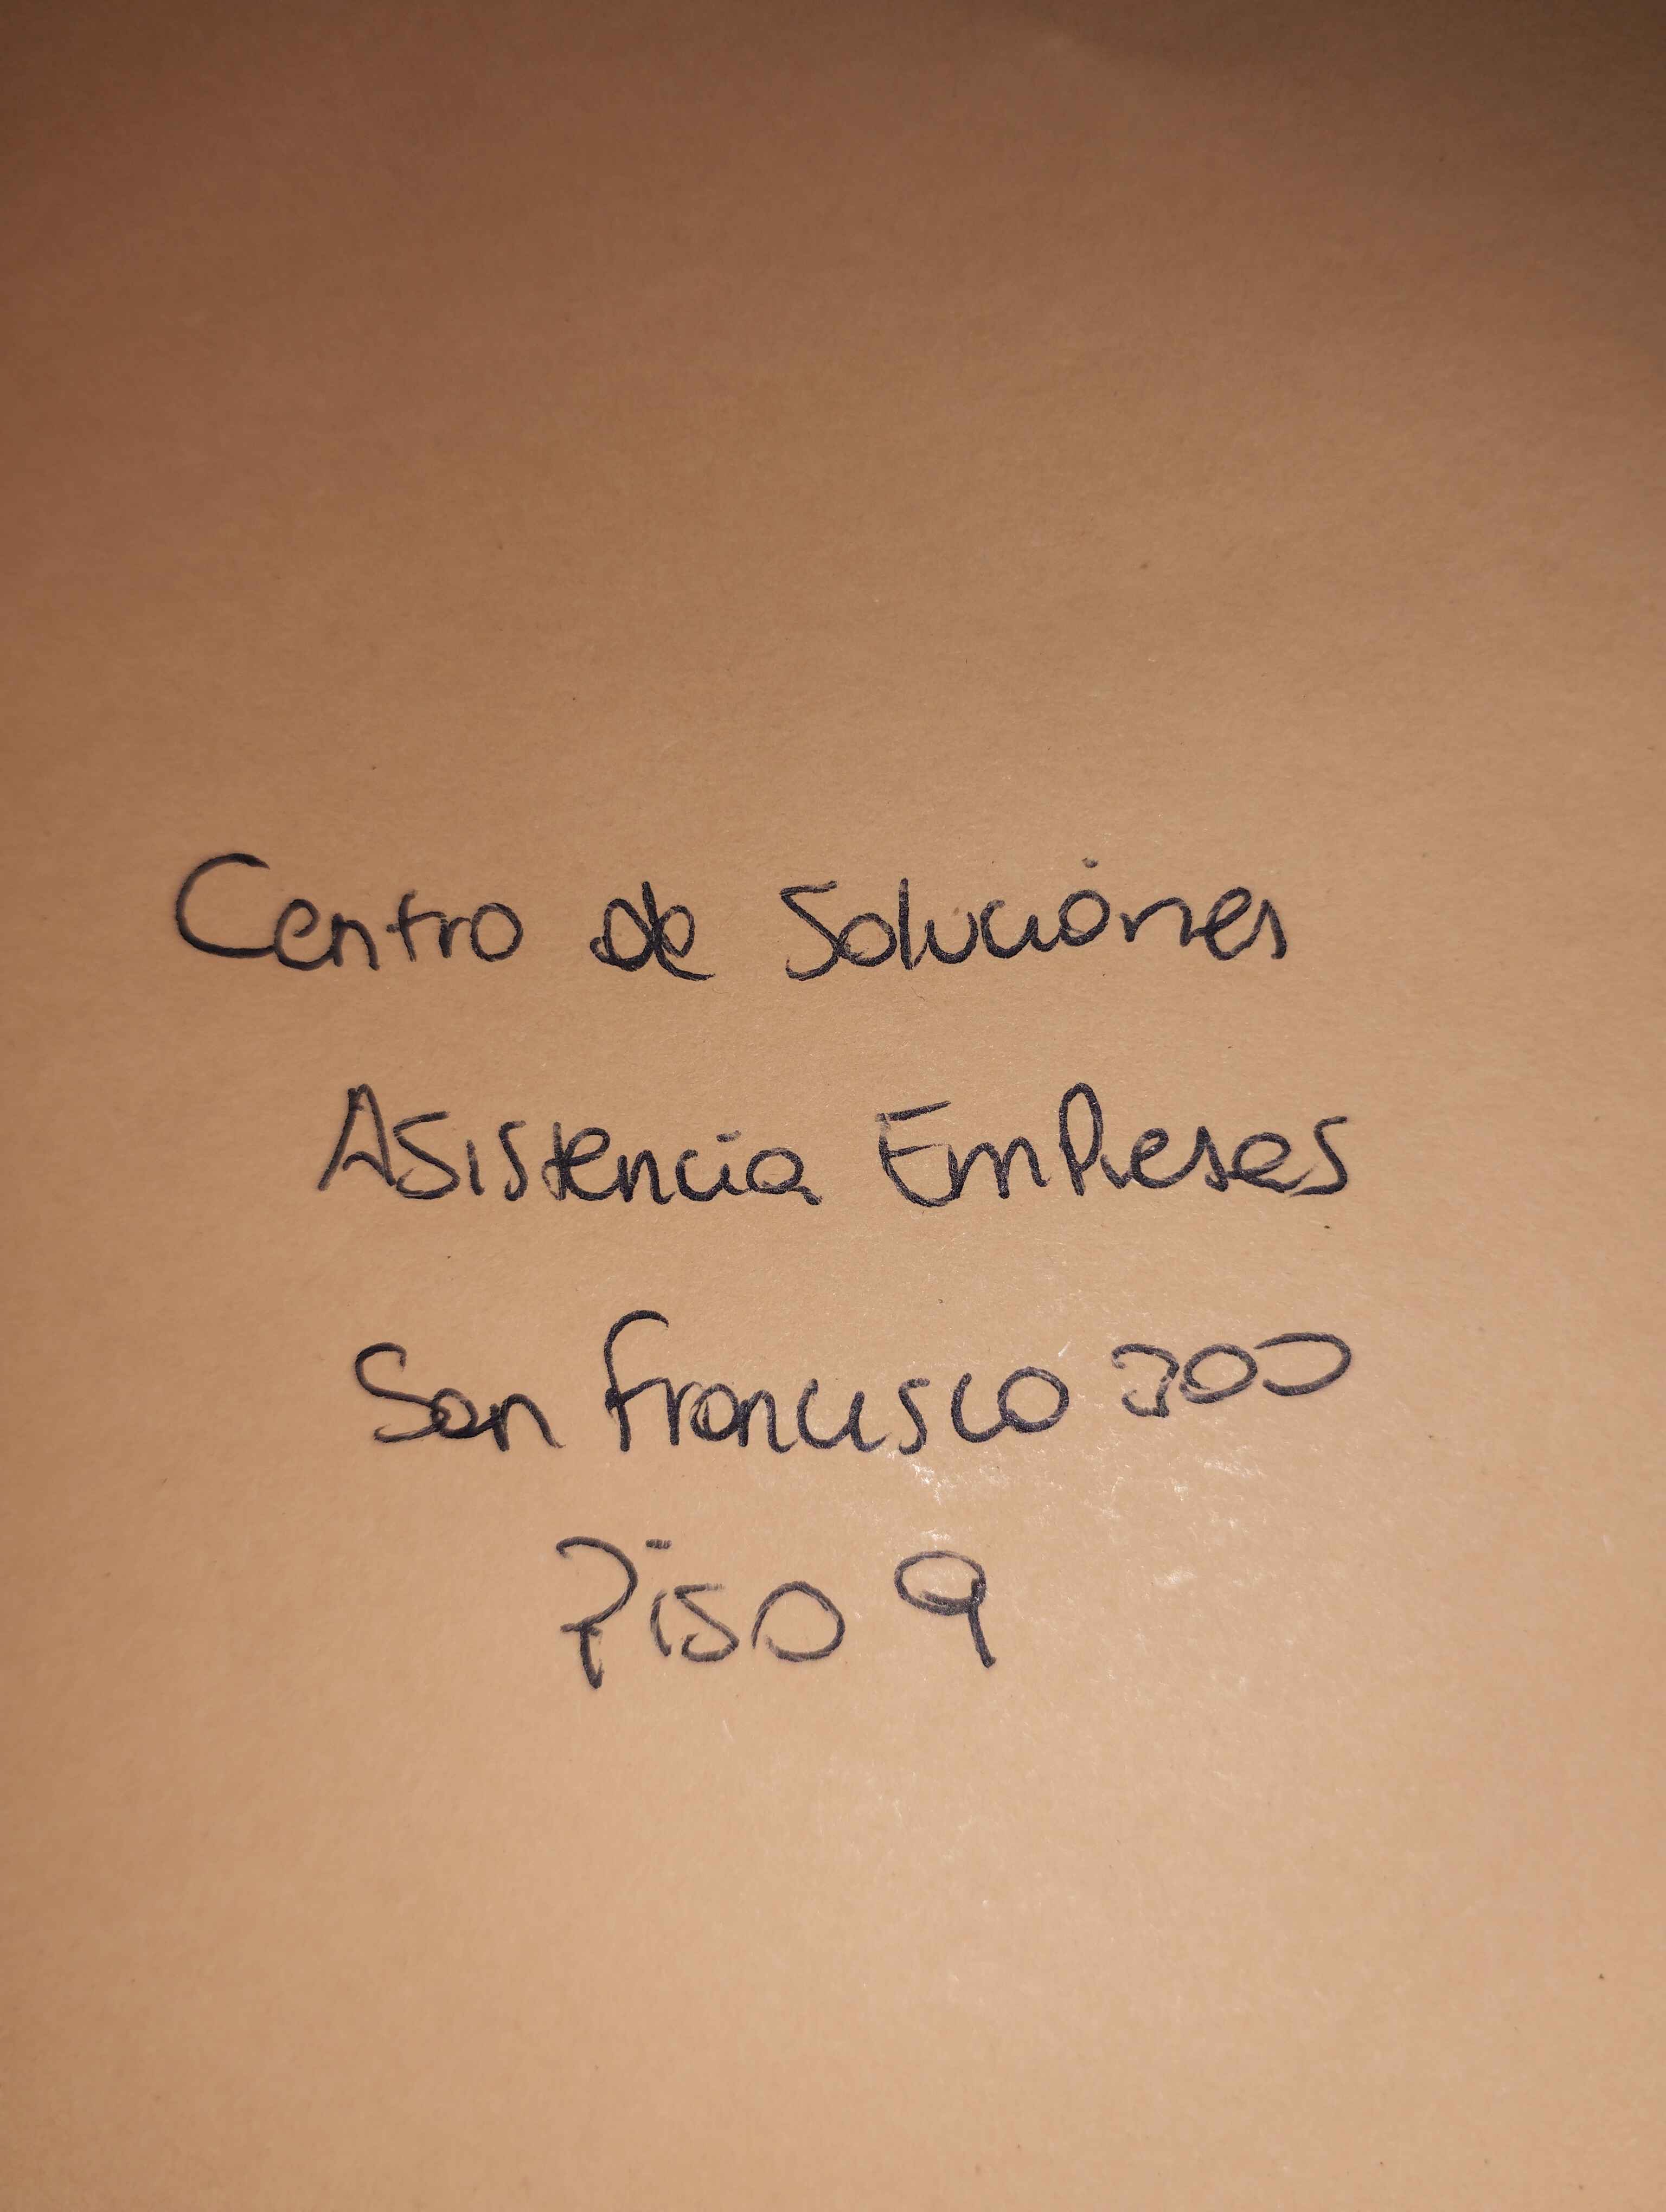 Centro de Soluciones
Asistencia EmPresas
San Francisco 300
Piso 9